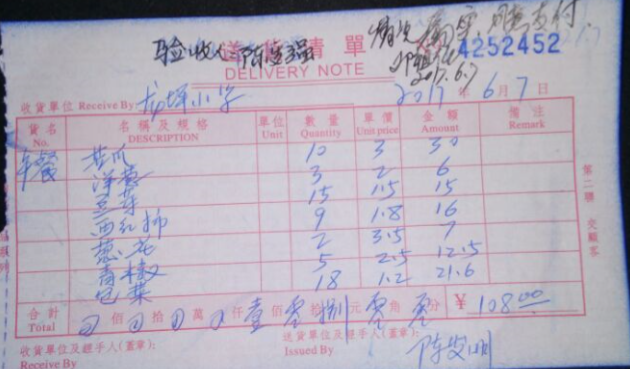 验收人:陈
送貨清單
DELIVERY NOTE
4252452
2017.6.7
收貨單位 Receive By 龙坪小学 2017年6月7日
貨名 No. 名稱及規格 DESCRIPTION 單位 Unit 數量 Quantity 單價 Unit price 金額 Amount 備注 Remark
午餐 苦瓜 10 3 30
洋葱 3 2 6
豆芽 15 1.5 15
西红柿 9 1.8 16
葱花 2 3.5 7
青椒 5 2.5 12.5
包菜 18 1.2 21.6
合計 Total 佰 拾 萬 仟 壹佰 零拾 捌元 零角 零分 ¥ 108.00
第二聯 交顧客
收貨單位及經手人(蓋章): Received By
送貨單位及經手人(蓋章): Issued By 陈